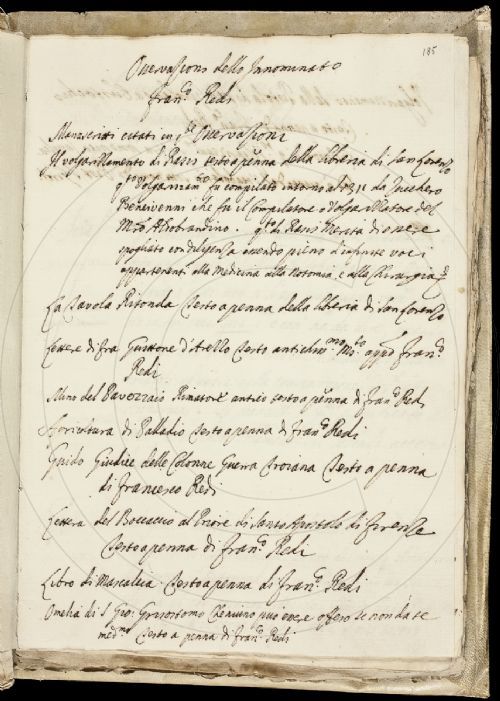 185
Osservazioni dello Innominato
Fran.o Redi
Manuscritti citati in q.te Osservazioni
Il volgarizzamento di Rasis testo a penna della libreria di San Lorenzo
q.to Volgarizzam.to fu compilato intorno al da Zucchero
Benivenni che fu il Compilatore o Volgarizzatore del
M.ro Aldobrandino. q.to di Rasis merita di essere
spogliato con diligenza essendo pieno d'infinite voci
appartenenti alla Medicina alla Notomia e alla Chirurgia
La Tavola Ritonda testo a penna della libreria di San Lorenzo
Lettere di Fra Guittone d'Arezzo testo antichis.mo Ms.to app.o Fran.o
Redi
Mino del Pavezzaio Rimatore antico testo a penna di Fran.o Redi
Agricoltura di Palladio testo a penna di Fran.o Redi
Guido Giudice delle Colonne Guerra Troiana testo a penna
di Francesco Redi
Lettera del Boccaccio al Priore di Santo Apostolo di Firenze
testo a penna di Fran.o Redi
Libro di Mascalcia testo a penna di Fran.o Redi
Omelia di S Gio: Grisostomo che niuno può essere offeso se non da se
med.mo testo a penna di Fran.o Redi